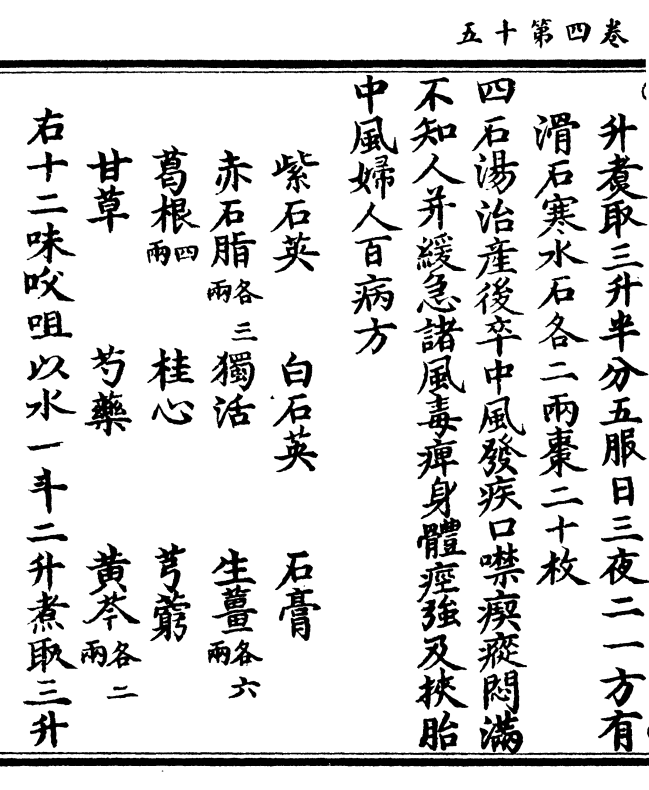 卷四第十五
升煑取三升半分五服日三夜二一方有
滑石寒水石各二兩棗二十枚
四石湯治産後卒中風發疾口噤瘈瘲悶滿
不知人并緩急諸風毒痺身體痙強及挾胎
中風婦人百病方
紫石英 白石英 石膏
赤石脂各三兩 獨活 生薑各六兩
葛根四兩 桂心 芎藭
甘草 芍藥 黃芩各二兩
右十二味㕮咀以水一斗二升煮取三升